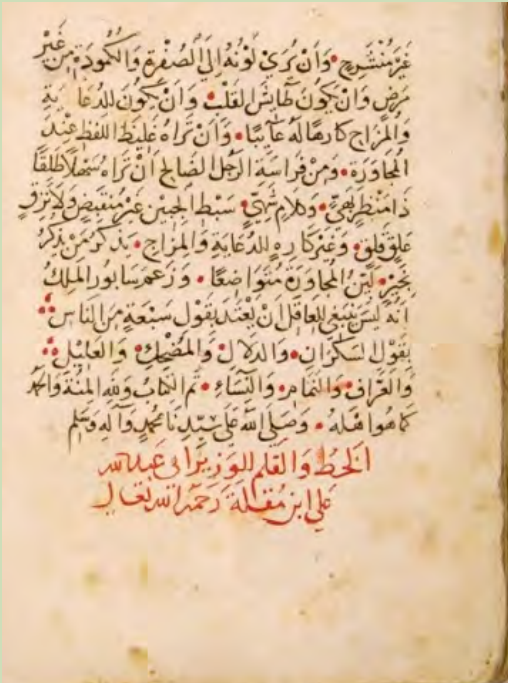 غَيْرَ مُنْشَرِحٍ • وَاَنْ يُرَيْ لَوْنُهُ اِلَي الصُفْرَةِ وَالْكُمودَةِ مِنْ غَيْرِ
مَرَضٍ وَاَنْ يَكُونَ طَائِشَ القَلْبِ • وَاَنْ يَكُونَ لِلدُعَابَةِ
وَالْمِزَاحِ كَارِهًا لَهُ عَائِبًا • وَاَنْ تَرَاهُ غَلِيظَ اللَفظِ عِنْدَ
الْمُحَاوَرَةِ • وَمِنْ فِرَاسَةِ الرَجُلِ الصَالِحِ اَنْ تَرَاهُ سَهْلًا طَلْقًا
ذَا مَنْظَرٍ بَهِيٍّ • وَكَلَامٍ شَهِيٍّ • سَبْطَ الجَبِينِ غَيْرَ مُنقَبِضٍ وَلَا نَزِقٍ
غَلِقٍ قَلِقٍ • وَغَيْرَ كَارِهٍ لِلدُعَابَةِ وَالْمِزَاحِ • يَذكُرُ مَنْ يَذْكُرُ
بِخَيْرٍ • لَيِّنَ الْمُحَاوَرَةِ مُتَوَاضِعًا • وَزَعَمَ سَابُورُ الْمَلِكُ
اَنَّهُ لَيْسَ يَنْبَغِي لِلعَاقِلِ اَنْ يَعْتَدَ بِقَوْلِ سَبْعَةٍ مِنَ النَاسِ
بِقَوْلِ السَكْرَانِ • وَالدَلَّالِ • وَالْمُضْحِكِ • وَالعَلِيْلِ
وَالعَرَّافِ • وَالنَمَّامِ • وَالنِسَاءِ • تَمَّ الكِتَابُ وَلِلَّهِ الْمِنَّةُ وَالحَمْدُ
كَمَا هُوَ اَهْلُهُ • وَصَلَّى اللَّهُ عَلَى سَيِّدِنَا مُحَمَّدٍ وَآلِهِ وَسَلَّم
الخَطُّ وَالقَلَم لِلوَزِيْرِ اَبِى عَبْدِ اللَّه
عَلِي ابْنِ مُقْلَةَ رَحِمَهُ اللَّه تَعَالَى